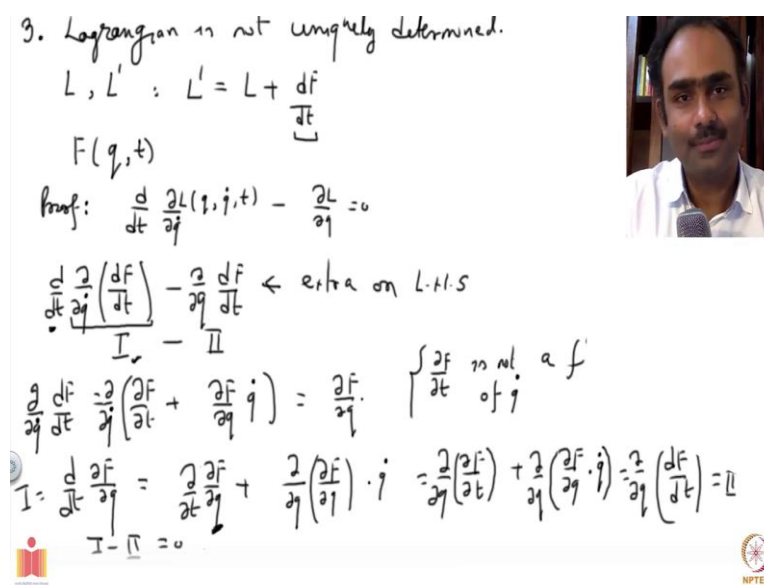 3. Lagrangian is not uniquely determined.
L, L' : L' = L + dF/dt
F(q,t)
Proof: d/dt ∂L(q,q̇,t)/∂q̇ − ∂L/∂q = 0
d/dt ∂/∂q̇ (dF/dt) − ∂/∂q dF/dt ← extra on L.H.S
I. − II
∂/∂q̇ dF/dt = ∂/∂q̇ (∂F/∂t + ∂F/∂q q̇) = ∂F/∂q. { ∂F/∂t is not a f
of q̇
I = d/dt ∂F/∂q = ∂/∂t ∂F/∂q + ∂/∂q (∂F/∂q) · q̇ = ∂/∂q (∂F/∂t) + ∂/∂q (∂F/∂q · q̇) = ∂/∂q (dF/dt) = II
I − II = 0
NPTE